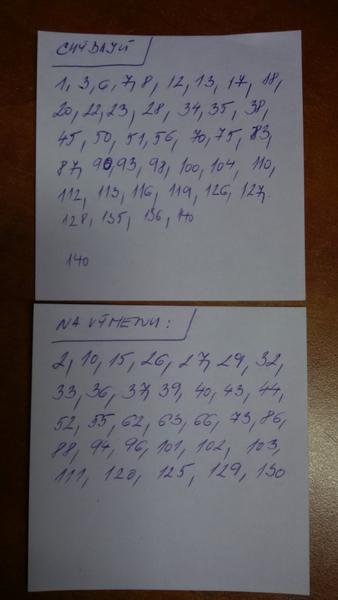 CHÝBAJÚ
1, 3, 6, 7, 8, 12, 13, 17, 18,
20, 22, 23, 28, 34, 35, 38,
45, 50, 51, 56, 70, 75, 83,
87, 90, 93, 98, 100, 104, 110,
112, 113, 116, 119, 126, 127.
128, 135, 136, 140
140
NA VÝMENU:
2, 10, 15, 26, 27, 29, 32,
33, 36, 37, 39, 40, 43, 44,
52, 55, 62, 63, 66, 73, 86,
88, 94, 96, 101, 102, 103,
111, 120, 125, 129, 130